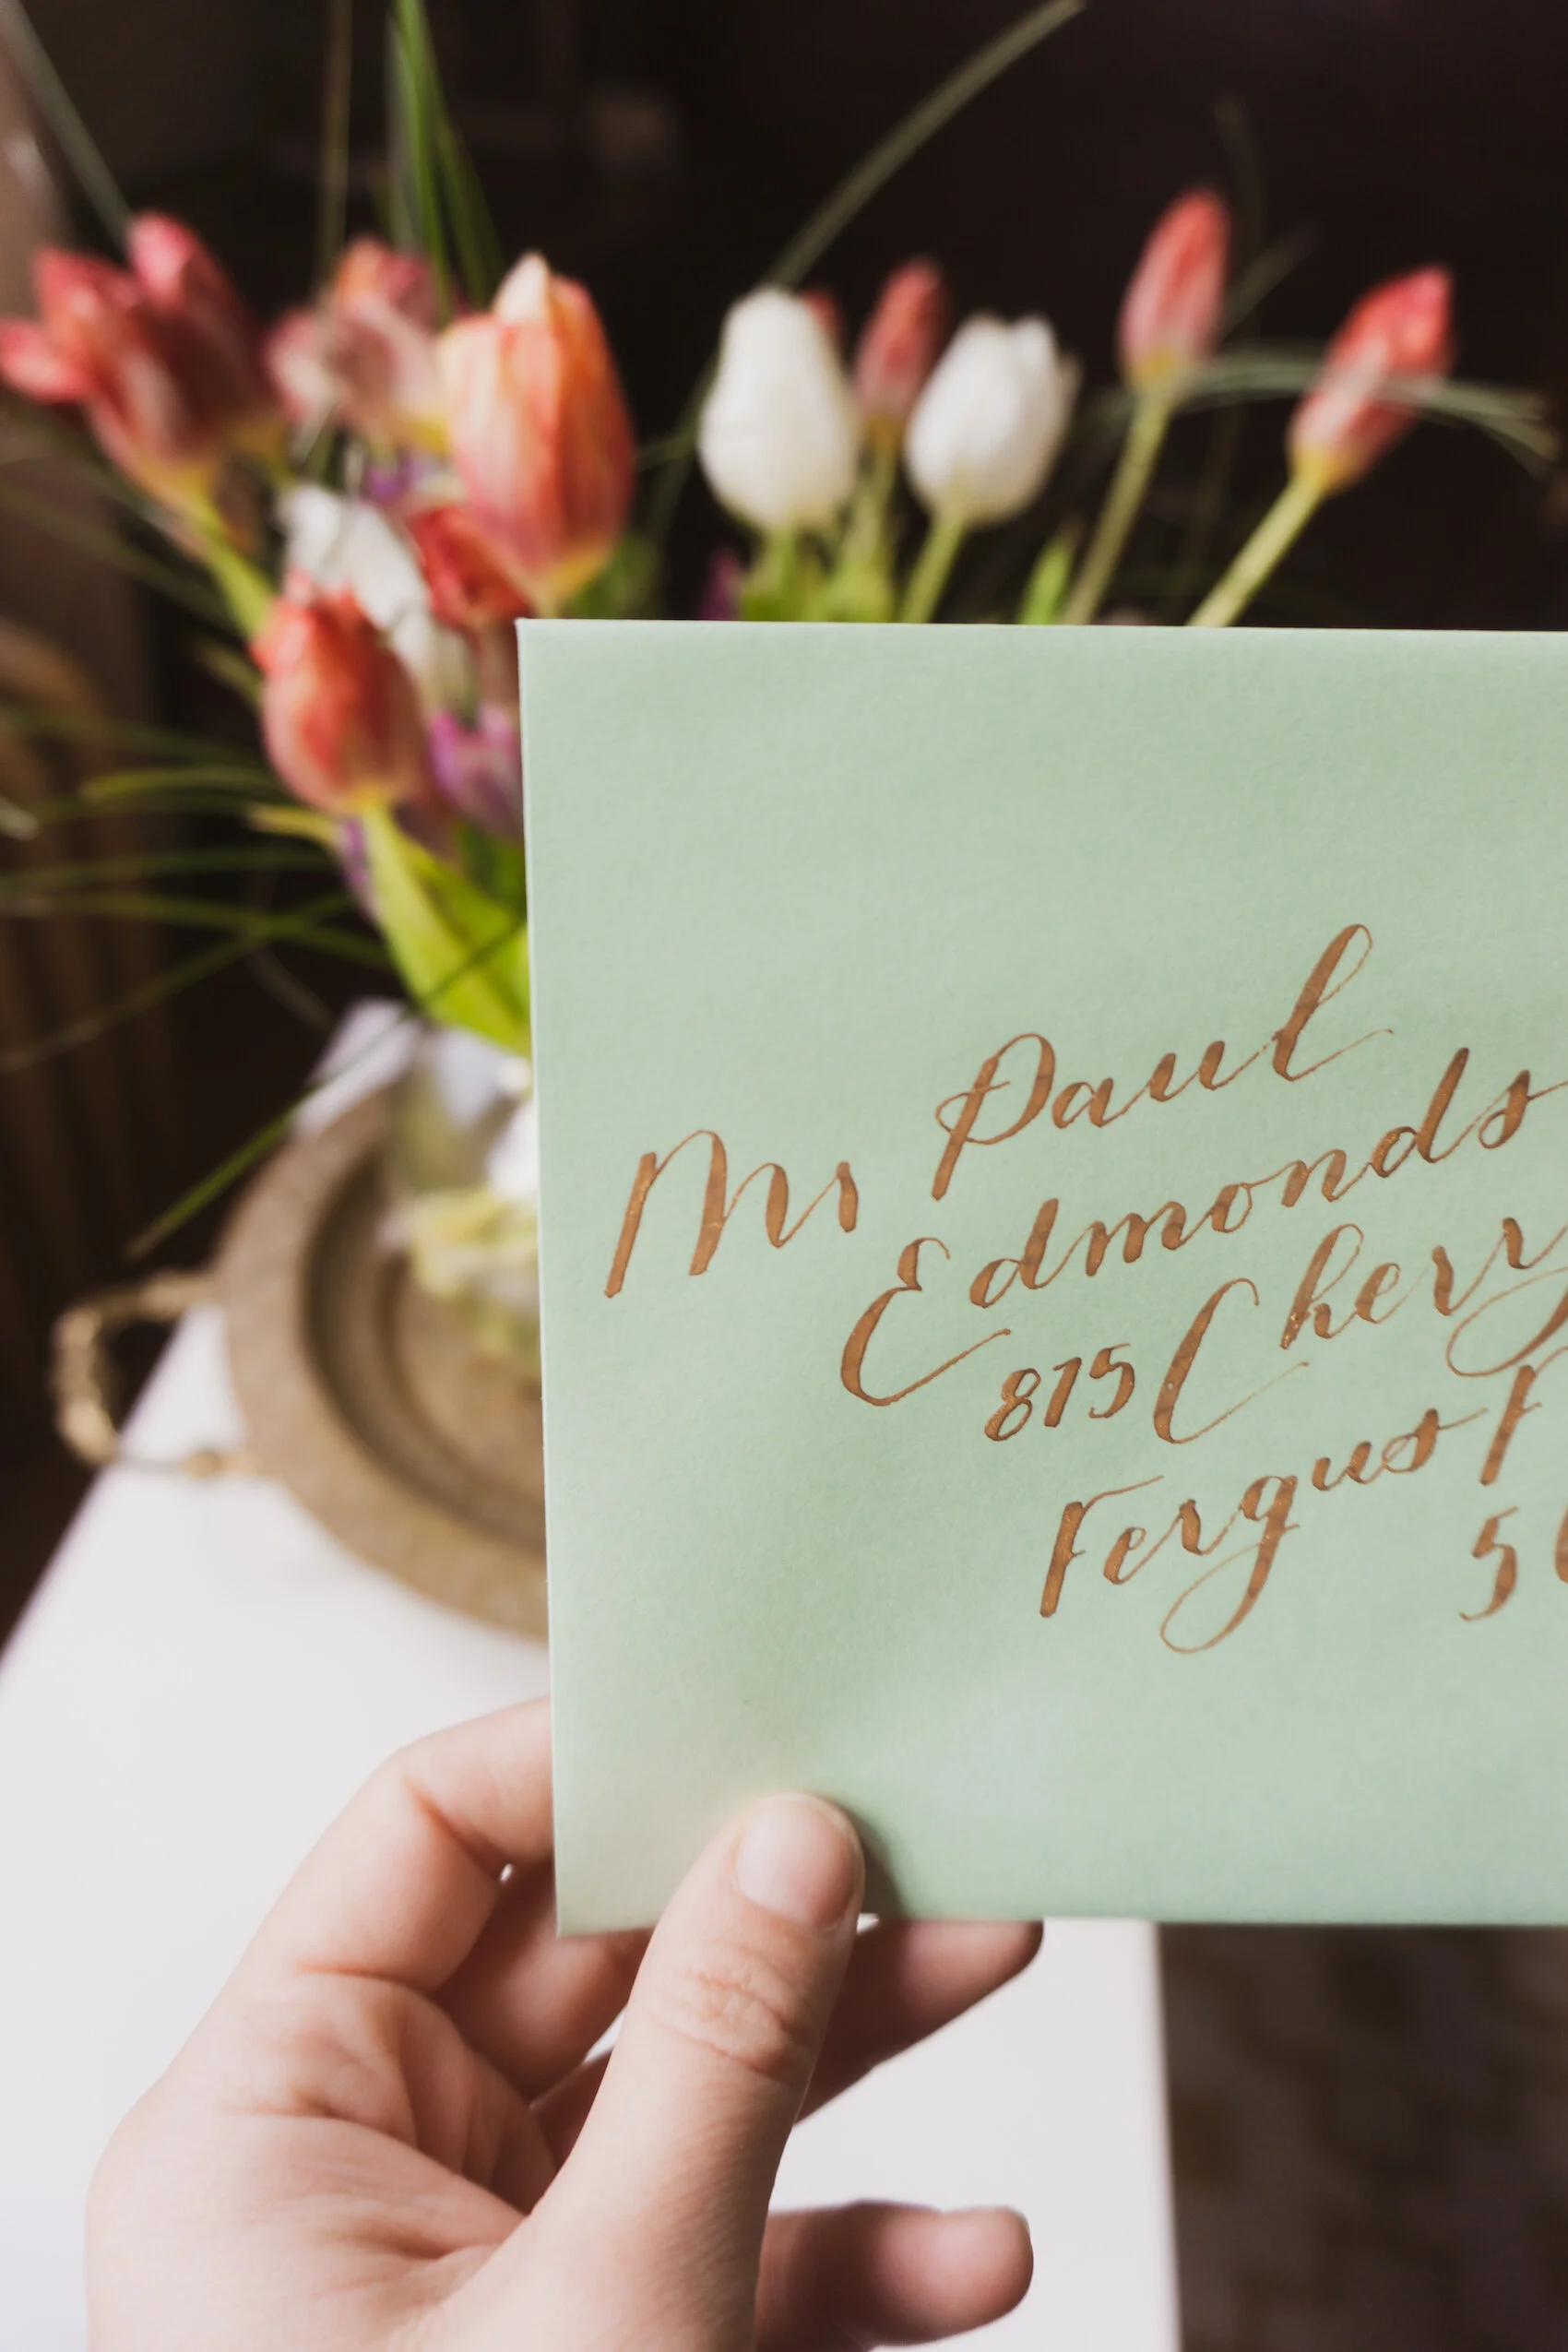 Mr Paul
Edmonds
815 Cherry
Fergus F
5